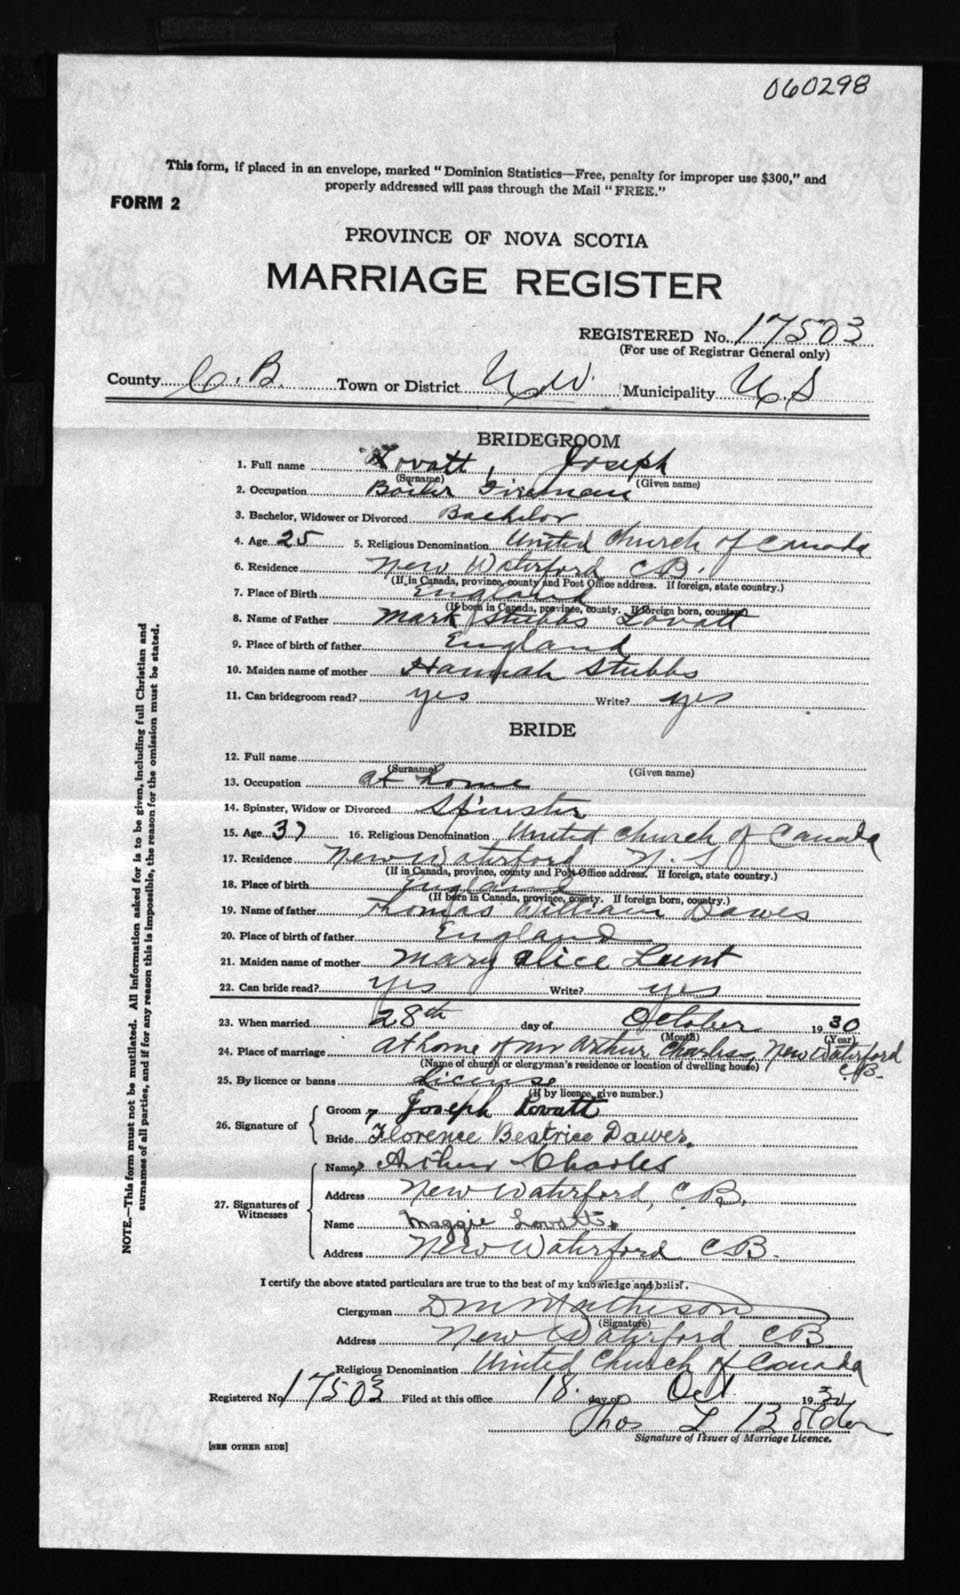 060298
This form, if placed in an envelope, marked "Dominion Statistics—Free, penalty for improper use $300," and
properly addressed will pass through the Mail "FREE."
FORM 2
PROVINCE OF NOVA SCOTIA
MARRIAGE REGISTER
REGISTERED No. 17503
(For use of Registrar General only)
County C.B. Town or District N.W. Municipality N.S
BRIDEGROOM
1. Full name Lovatt, Joseph
(Surname) (Given name)
2. Occupation Boiler Fireman
3. Bachelor, Widower or Divorced Bachelor
4. Age 25 5. Religious Denomination United Church of Canada
6. Residence New Waterford C.B.
(If in Canada, province, county and Post Office address. If foreign, state country.)
7. Place of Birth England
(If born in Canada, province, county. If foreign born, country)
8. Name of Father Mark Stubbs Lovatt
9. Place of birth of father England
10. Maiden name of mother Hannah Stubbs
11. Can bridegroom read? yes Write? yes
BRIDE
12. Full name
(Surname) (Given name)
13. Occupation at home
14. Spinster, Widow or Divorced Spinster
15. Age 37 16. Religious Denomination United Church of Canada
17. Residence New Waterford N.S
(If in Canada, province, county and Post Office address. If foreign, state country.)
18. Place of birth England
(If born in Canada, province, county. If foreign born, country.)
19. Name of father Thomas William Dawes
20. Place of birth of father England
21. Maiden name of mother Mary Alice Lunt
22. Can bride read? yes Write? yes
23. When married 28th day of October 1930
(Month) (Year)
24. Place of marriage at home of Mr Arthur Charles, New Waterford
C.B.
(Name of church or clergyman's residence or location of dwelling house)
25. By licence or banns License
(If by licence, give number.)
26. Signature of
Groom Joseph Lovatt
Bride Florence Beatrice Dawes.
27. Signatures of
Witnesses
Name Arthur Charles
Address New Waterford, C.B.
Name Maggie Lovatt.
Address New Waterford C.B.
I certify the above stated particulars are true to the best of my knowledge and belief.
Clergyman D M Matheson
(Signature)
Address New Waterford C.B.
Religious Denomination United Church of Canada
Registered No. 17503 Filed at this office 18. day of Oct. 1930
Thos L
Signature of Issuer of Marriage Licence.
[SEE OTHER SIDE]
NOTE.—This form must not be mutilated. All information asked for is to be given, including full Christian and
surnames of all parties, and if for any reason this is impossible, the reason for the omission must be stated.